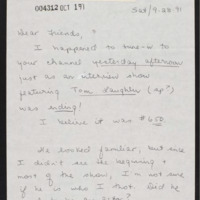 004312 OCT 17 1
Sat/9.28.91
Dear friends,
I happened to tune-in to
your channel yesterday afternoon
just as an interview show
featuring Tom Vaughn (sp?)
was ending!
I believe it was #650
He looked familiar, but since
I didn't see the beginning &
most of the show, I'm not sure
if he is who I thot. Did he